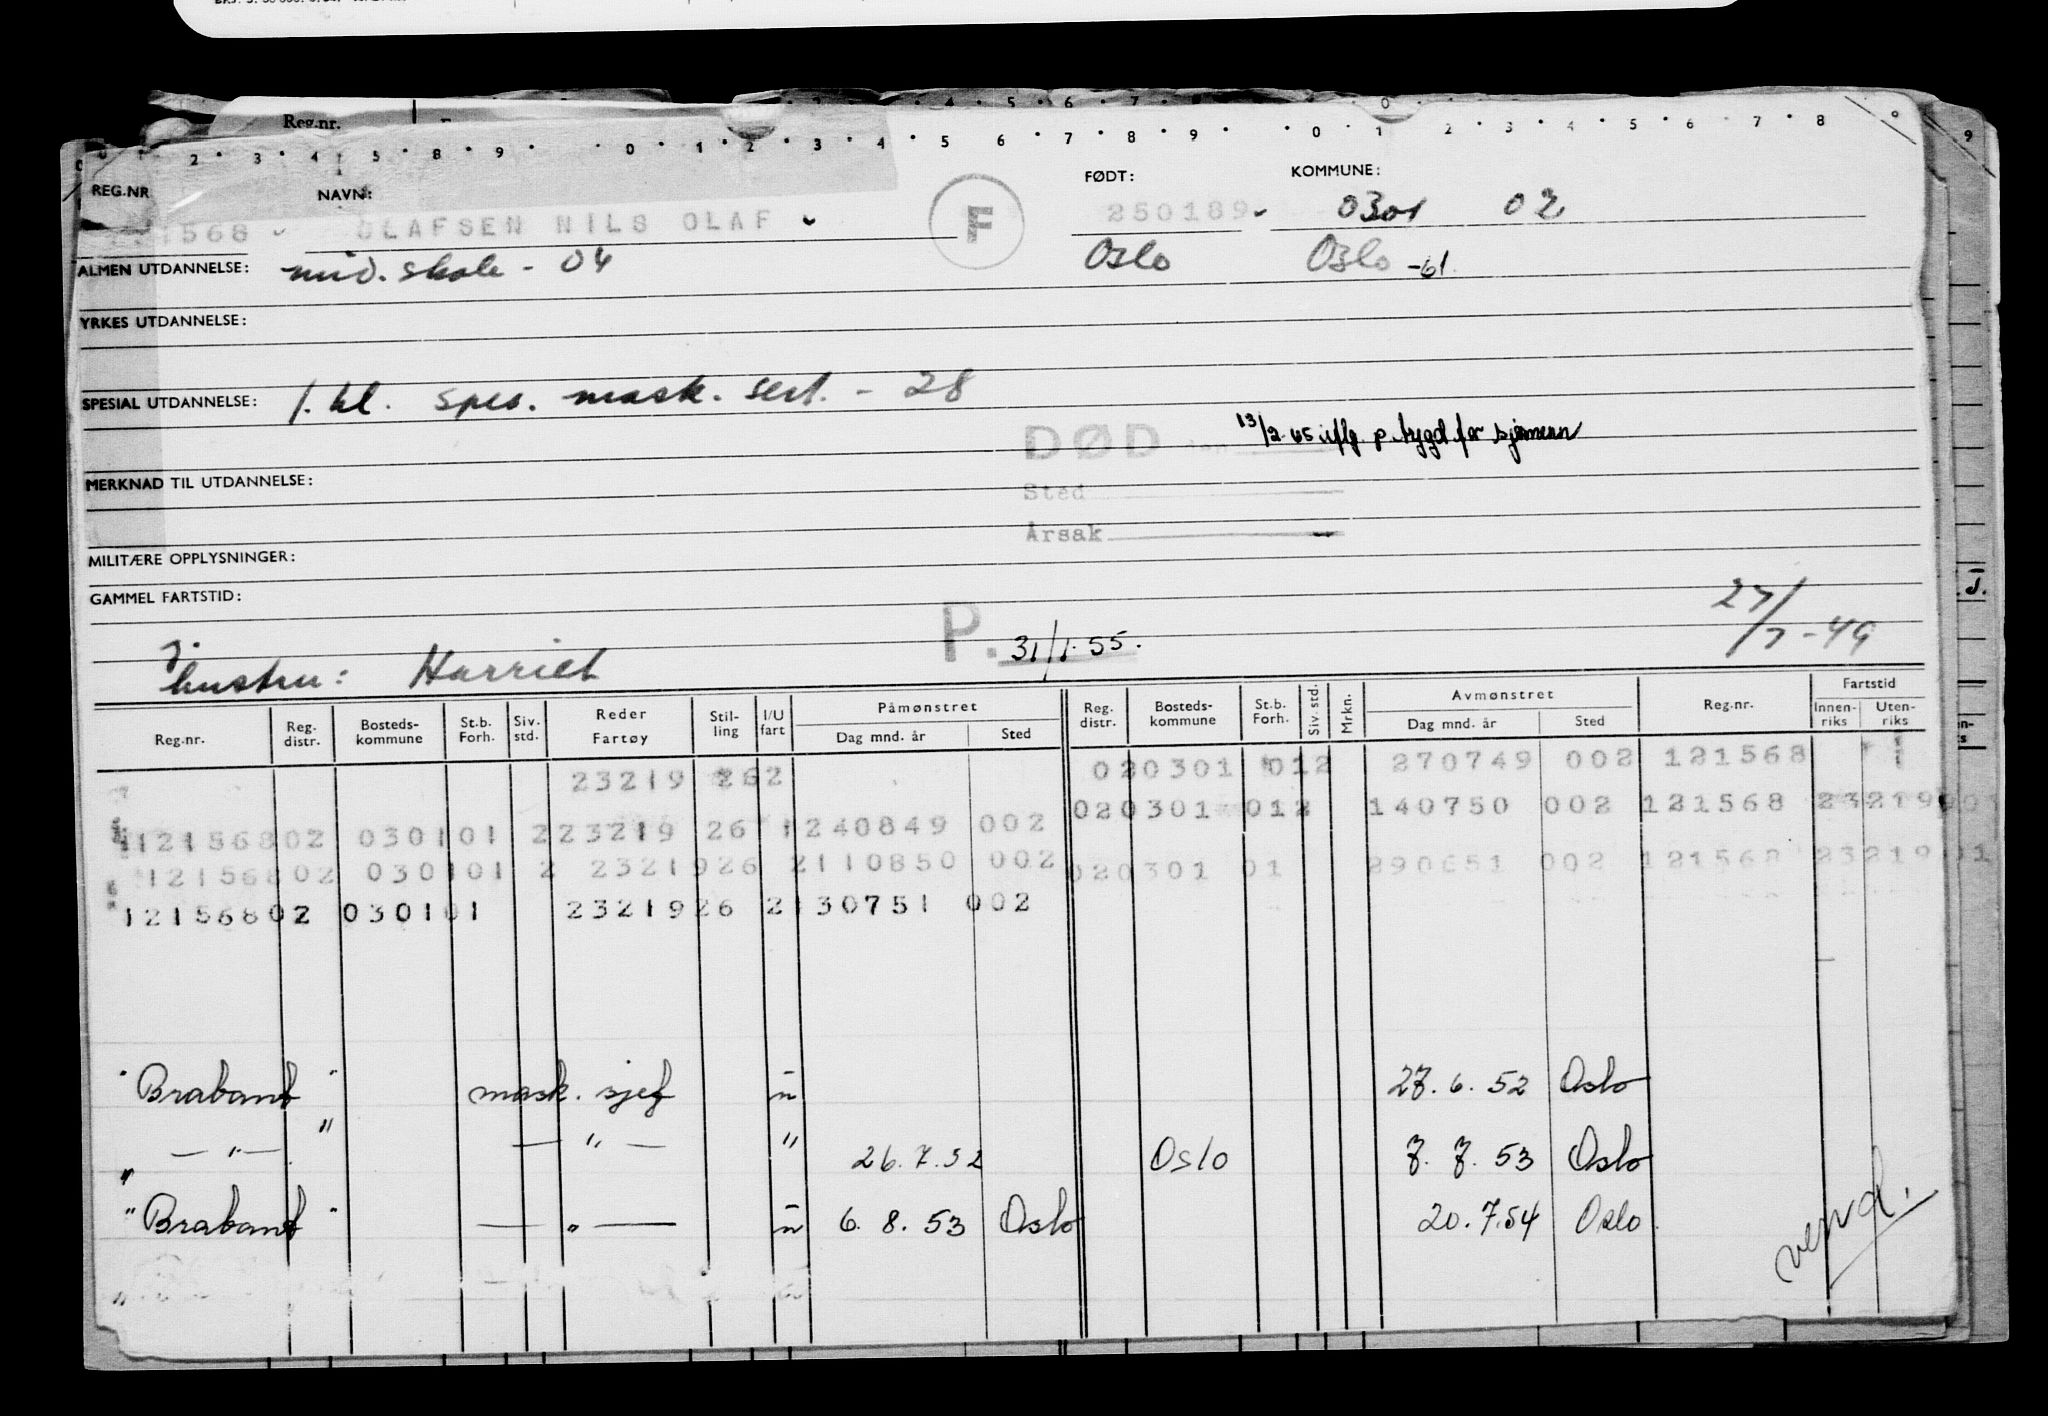 Reg.nr.
REG.NR NAVN: FØDT: KOMMUNE:
1568 OLAFSEN NILS OLAF F 250189 0301 02
ALMEN UTDANNELSE: mid. skole - 04 Oslo Oslo -61.
YRKES UTDANNELSE:
SPESIAL UTDANNELSE: 1. kl. spes. mask. sert. - 28
DØD den 13/2-65 iflg. p. trygd for sjømenn
MERKNAD TIL UTDANNELSE:
Sted
Årsak
MILITÆRE OPPLYSNINGER:
GAMMEL FARTSTID:
P. 31/1.55. 27/7-49
hustru: Harriet
Reg.nr. Reg. distr. Bosteds-kommune St.b. Forh. Siv. std. Reder Fartøy Stil-ling I/U fart Påmønstret Dag mnd. år Sted Reg. distr. Bosteds-kommune St.b. Forh. Siv. std. Mrkn. Avmønstret Dag mnd. år Sted Reg.nr. Fartstid Innen-riks Uten-riks
23219 262 020301 012 270749 002 121568
12156802 030101 223219 26 1240849 002 020301 012 140750 002 121568 23219
12156802 030101 2 2321926 2110850 002 020301 01 290651 002 121568 23219
12156802 030101 2321926 2130751 002
"Brabant" mask. sjef u 27.6.52 Oslo
— " — " — " — " 26.7.52 Oslo 7.7.53 Oslo
"Brabant" — " — u 6.8.53 Oslo 20.7.54 Oslo
vend.